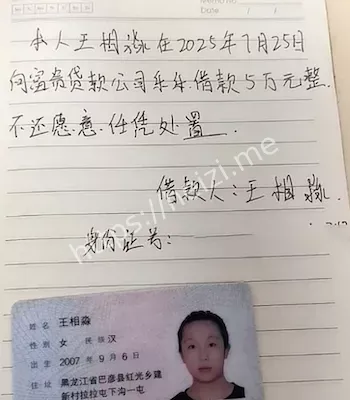 Date /
本人王相淼在2025年7月25日
向富贵贷款公司乖乖借款5万元整.
不还愿意.任凭处置.
借款人:王相淼.
身份证号:
姓名 王相淼
性别 女 民族 汉
出生 2007年9月6日
住址 黑龙江省巴彦县红光乡建
新村拉拉屯下沟一屯